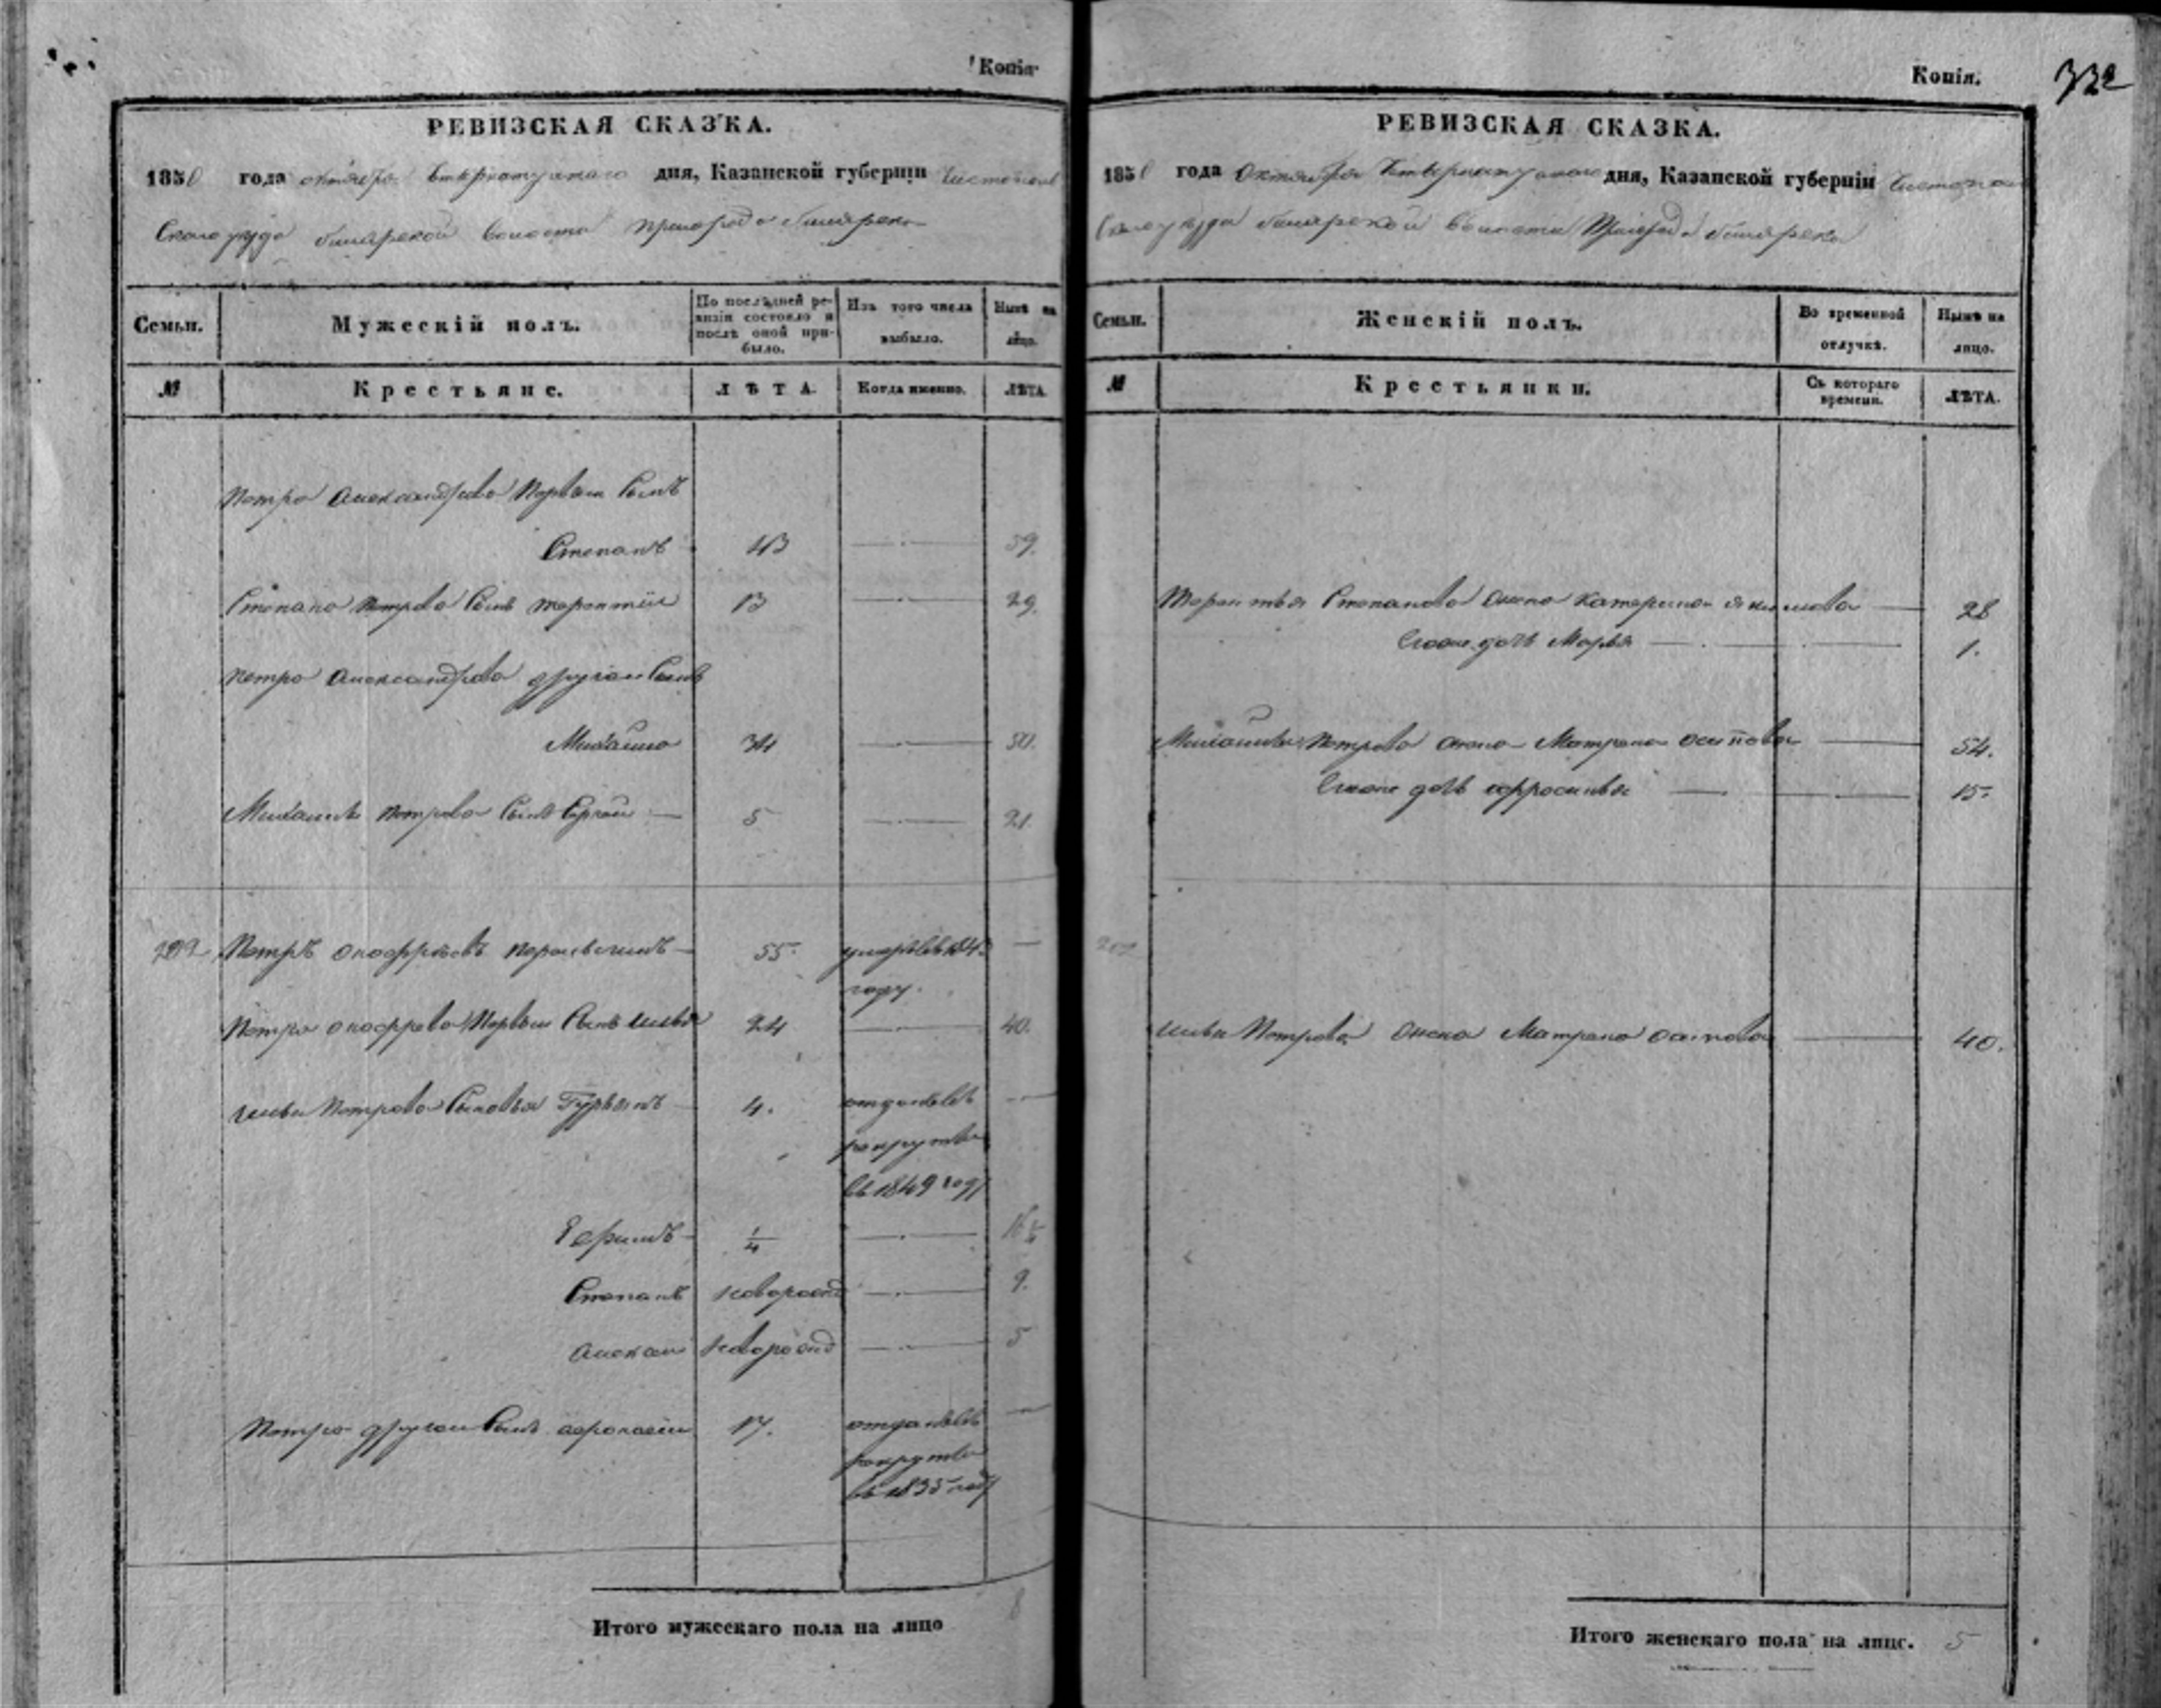 Копія
РЕВИЗСКАЯ СКАЗКА.
1850 года октября дня, Казанской губерніи Чистополь
Скаго уезда билярской волости пригорода билярска
Семьи.
Мужескій полъ.
По послѣдней ревизіи состояло и послѣ оной прибыло.
Изъ того числа выбыло.
Нынѣ на лицо.
№
Крестьяне.
ЛѢТА.
Когда именно.
ЛѢТА.
Петра Александрова Первый Сынъ
Степанъ 43 59.
Степана Петрова Сынъ Терентий 13 29.
Петра Александрова другой Сынъ
Михайло 34 50.
Михайлы Петрова Сынъ Сергей 5 21.
202 Петръ Онофриевъ 55. умеръ въ
году.
Петра Онофриева Первый Сынъ Илья 24 40.
Ильи Петрова Сыновья Гурьянъ 4. отданъ въ
рекруты
въ 1849 году
Ефимъ 1/4 16 1/4
Степанъ новорожд 9.
Алексей новорожд 5
Петра другой Сынъ 17. отданъ въ
рекруты
въ 1835 году
Итого мужескаго пола на лицо 8
Копія.
332
РЕВИЗСКАЯ СКАЗКА.
1850 года Октября дня, Казанской губерніи Чистополь
Скаго уезда билярской волости Пригорода билярска
Семьи.
Женскій полъ.
Во временной отлучкѣ.
Нынѣ на лицо.
№
Крестьянки.
Съ котораго времени.
ЛѢТА.
Терентья Степанова жена Катерина якимова 28
Ихъ дочь Марья 1.
Михайлы Петрова жена Матрена осипова 54.
дочь афросинья 15.
Ильи Петрова жена Матрена осипова 40.
Итого женскаго пола на лицо. 5